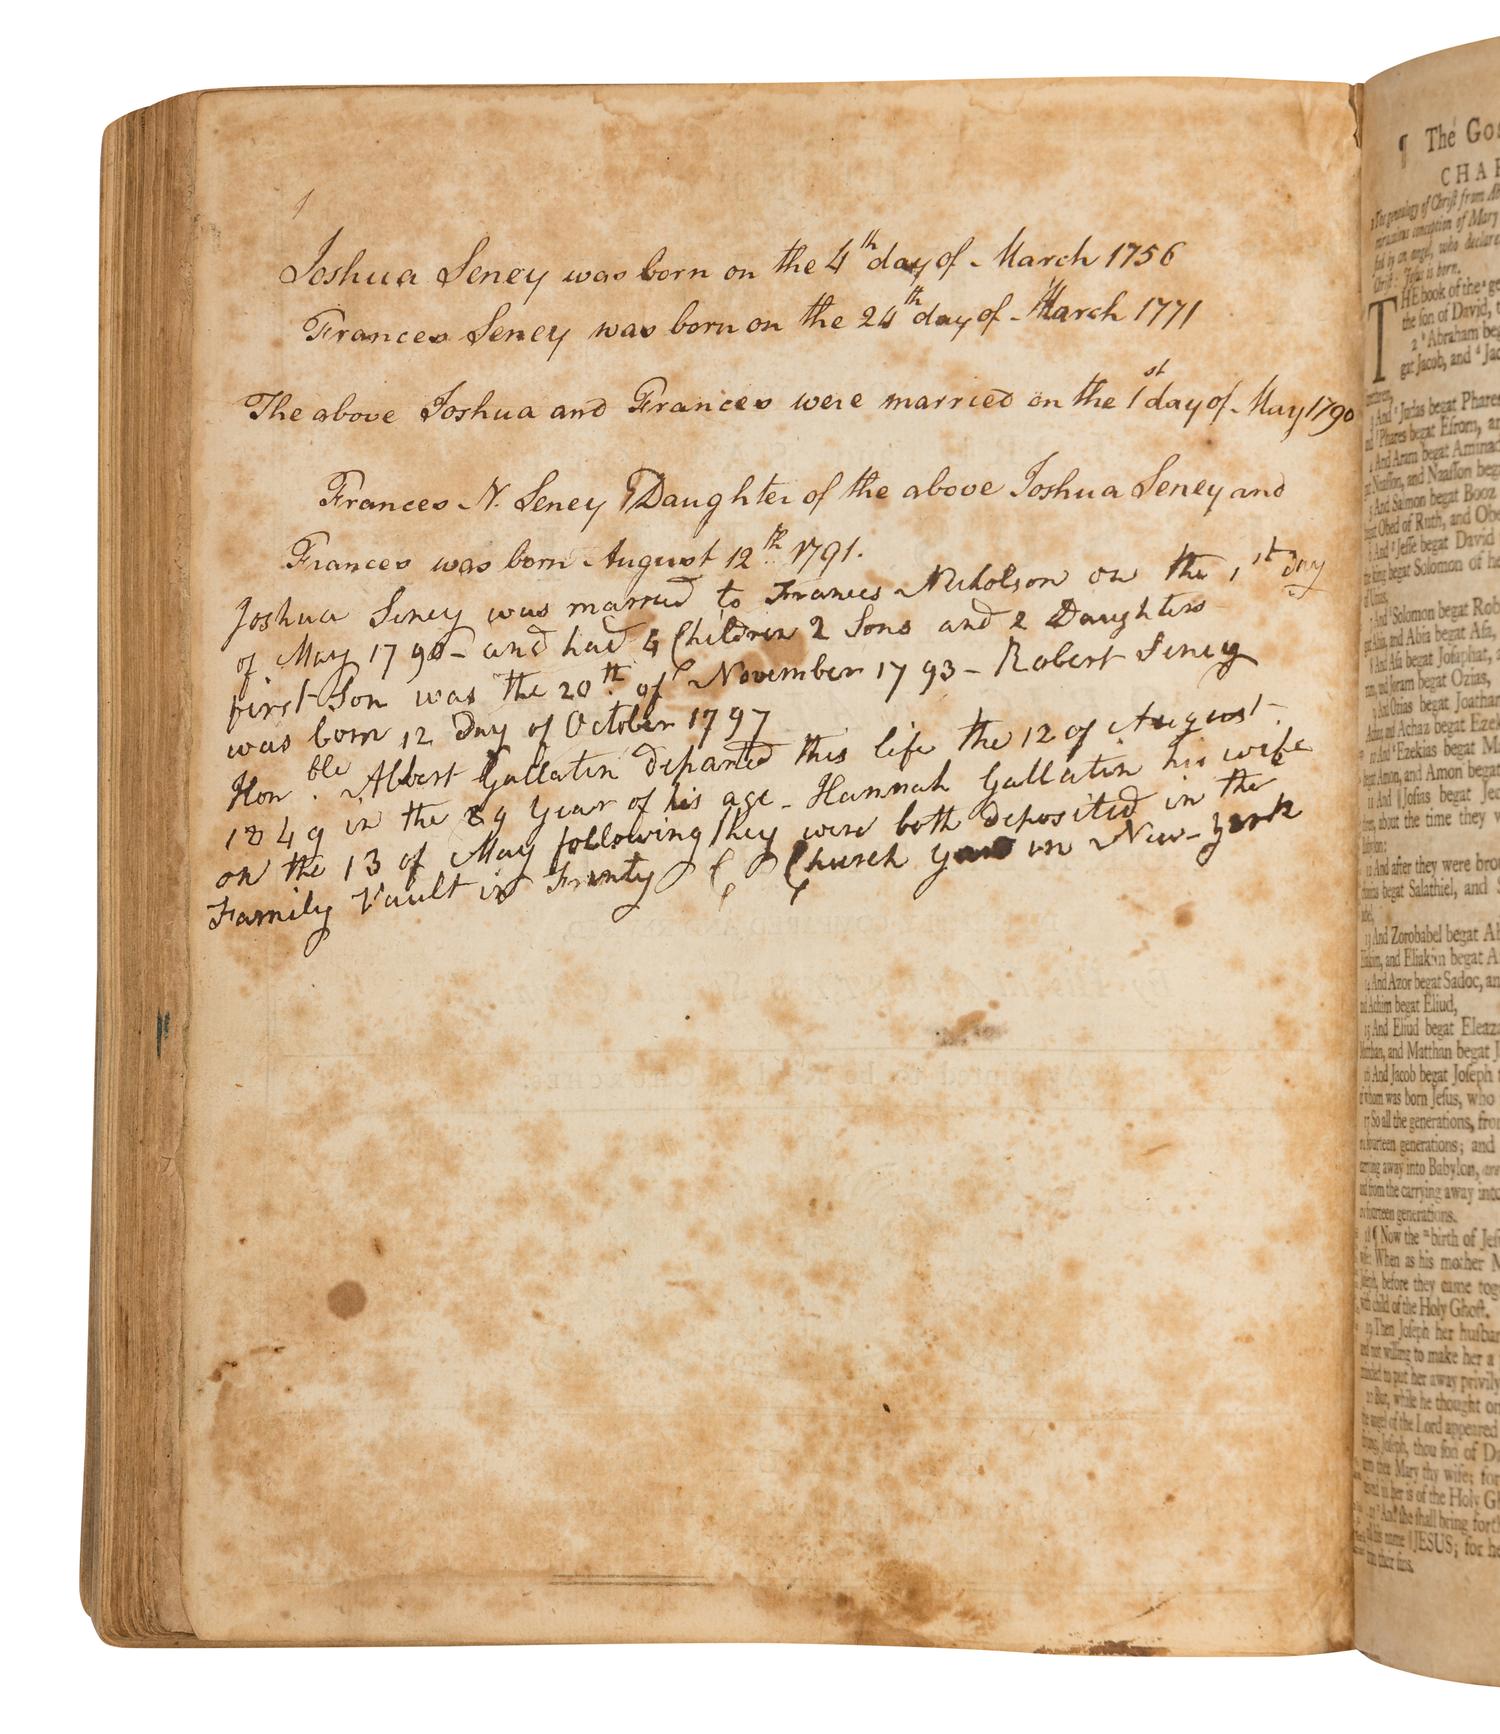 Joshua Seney was born on the 4th day of March 1756
Frances Seney was born on the 24th day of March 1771
The above Joshua and Frances were married on the 1st day of May 1790
Frances N. Seney Daughter of the above Joshua Seney and
Frances was born August 12th 1791.
Joshua Seney was married to Frances Nicholson on the 1st day
of May 1790 – and had 4 Children 2 Sons and 2 Daughters
first Son was the 20th of November 1793 – Robert Seney
was born 12 Day of October 1797
Honble. Albert Gallatin departed this life the 12 of August
1849 in the 89 Year of his age – Hannah Gallatin his wife
on the 13 of May following they were both deposited in the
Family Vault in Trinty Church yard in New-York
¶ The Gos
CHAP
1 The genealogy of Christ from Ab
raculous conception of Mary
fied by an angel, who declare
Christ: Jesus is born.
THE book of the ge
the son of David, t
2 Abraham beg
gat Jacob, and Jac
brethren,
3 And Judas begat Phares
Phares begat Esrom, an
4 And Aram begat Aminad
Naasson, and Naasson begat
5 And Salmon begat Booz
begat Obed of Ruth, and Obe
6 And Jesse begat David
the king begat Solomon of he
of Urias,
7 And Solomon begat Rob
gat Abia, and Abia begat Asa,
8 And Asa begat Josaphat, a
ram, and Joram begat Ozias,
9 And Ozias begat Joathan
Achaz begat Ezek
10 And Ezekias begat Ma
begat Amon, and Amon begat
11 And Josias begat Jec
thren, about the time they w
Babylon:
12 And after they were brou
chonias begat Salathiel, and S
babel,
13 And Zorobabel begat Ab
Eliakim, and Eliakim begat A
14 And Azor begat Sadoc, an
and Achim begat Eliud,
15 And Eliud begat Eleaza
Matthan, and Matthan begat J
16 And Jacob begat Joseph t
of whom was born Jesus, who
17 So all the generations, from
fourteen generations; and
carrying away into Babylon, are
and from the carrying away into
fourteen generations.
18 ¶ Now the birth of Jes
wise: When as his mother M
Joseph, before they came tog
with child of the Holy Ghost.
19 Then Joseph her husban
and not willing to make her a
minded to put her away privily
20 But, while he thought on
the angel of the Lord appeared
Joseph, thou son of Da
unto thee Mary thy wife; for
in her is of the Holy Gh
21 And she shall bring forth
his name JESUS; for he
their sins.